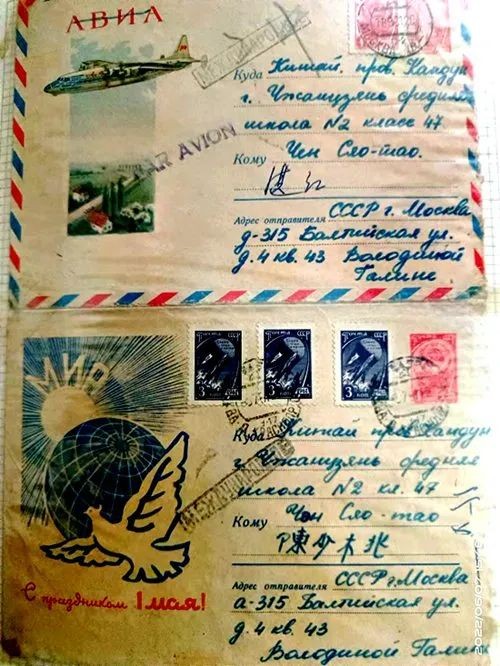 АВИА
МЕЖДУНАРОДНОЕ
PAR AVION
Куда Китай. пров. Кандун
г. Чжанцзянь средняя
школа N2 класс 47
Кому Чен Сяо-тао.
Адрес отправителя СССР г. Москва
д-315 Балтийская ул.
д. 4 кв. 43 Володиной
Галине
МИР
ПОЧТА СССР
3
3
3
МЕЖДУНАРОДНОЕ
Куда Китай пров Кандун
г. Чжанцзянь средняя
школа N2 кл. 47
Кому Чен Сяо-тао
陳少木兆
С праздником 1 мая!
Адрес отправителя СССР г. Москва
а-315 Балтийская ул.
д. 4 кв. 43
Володиной Галине